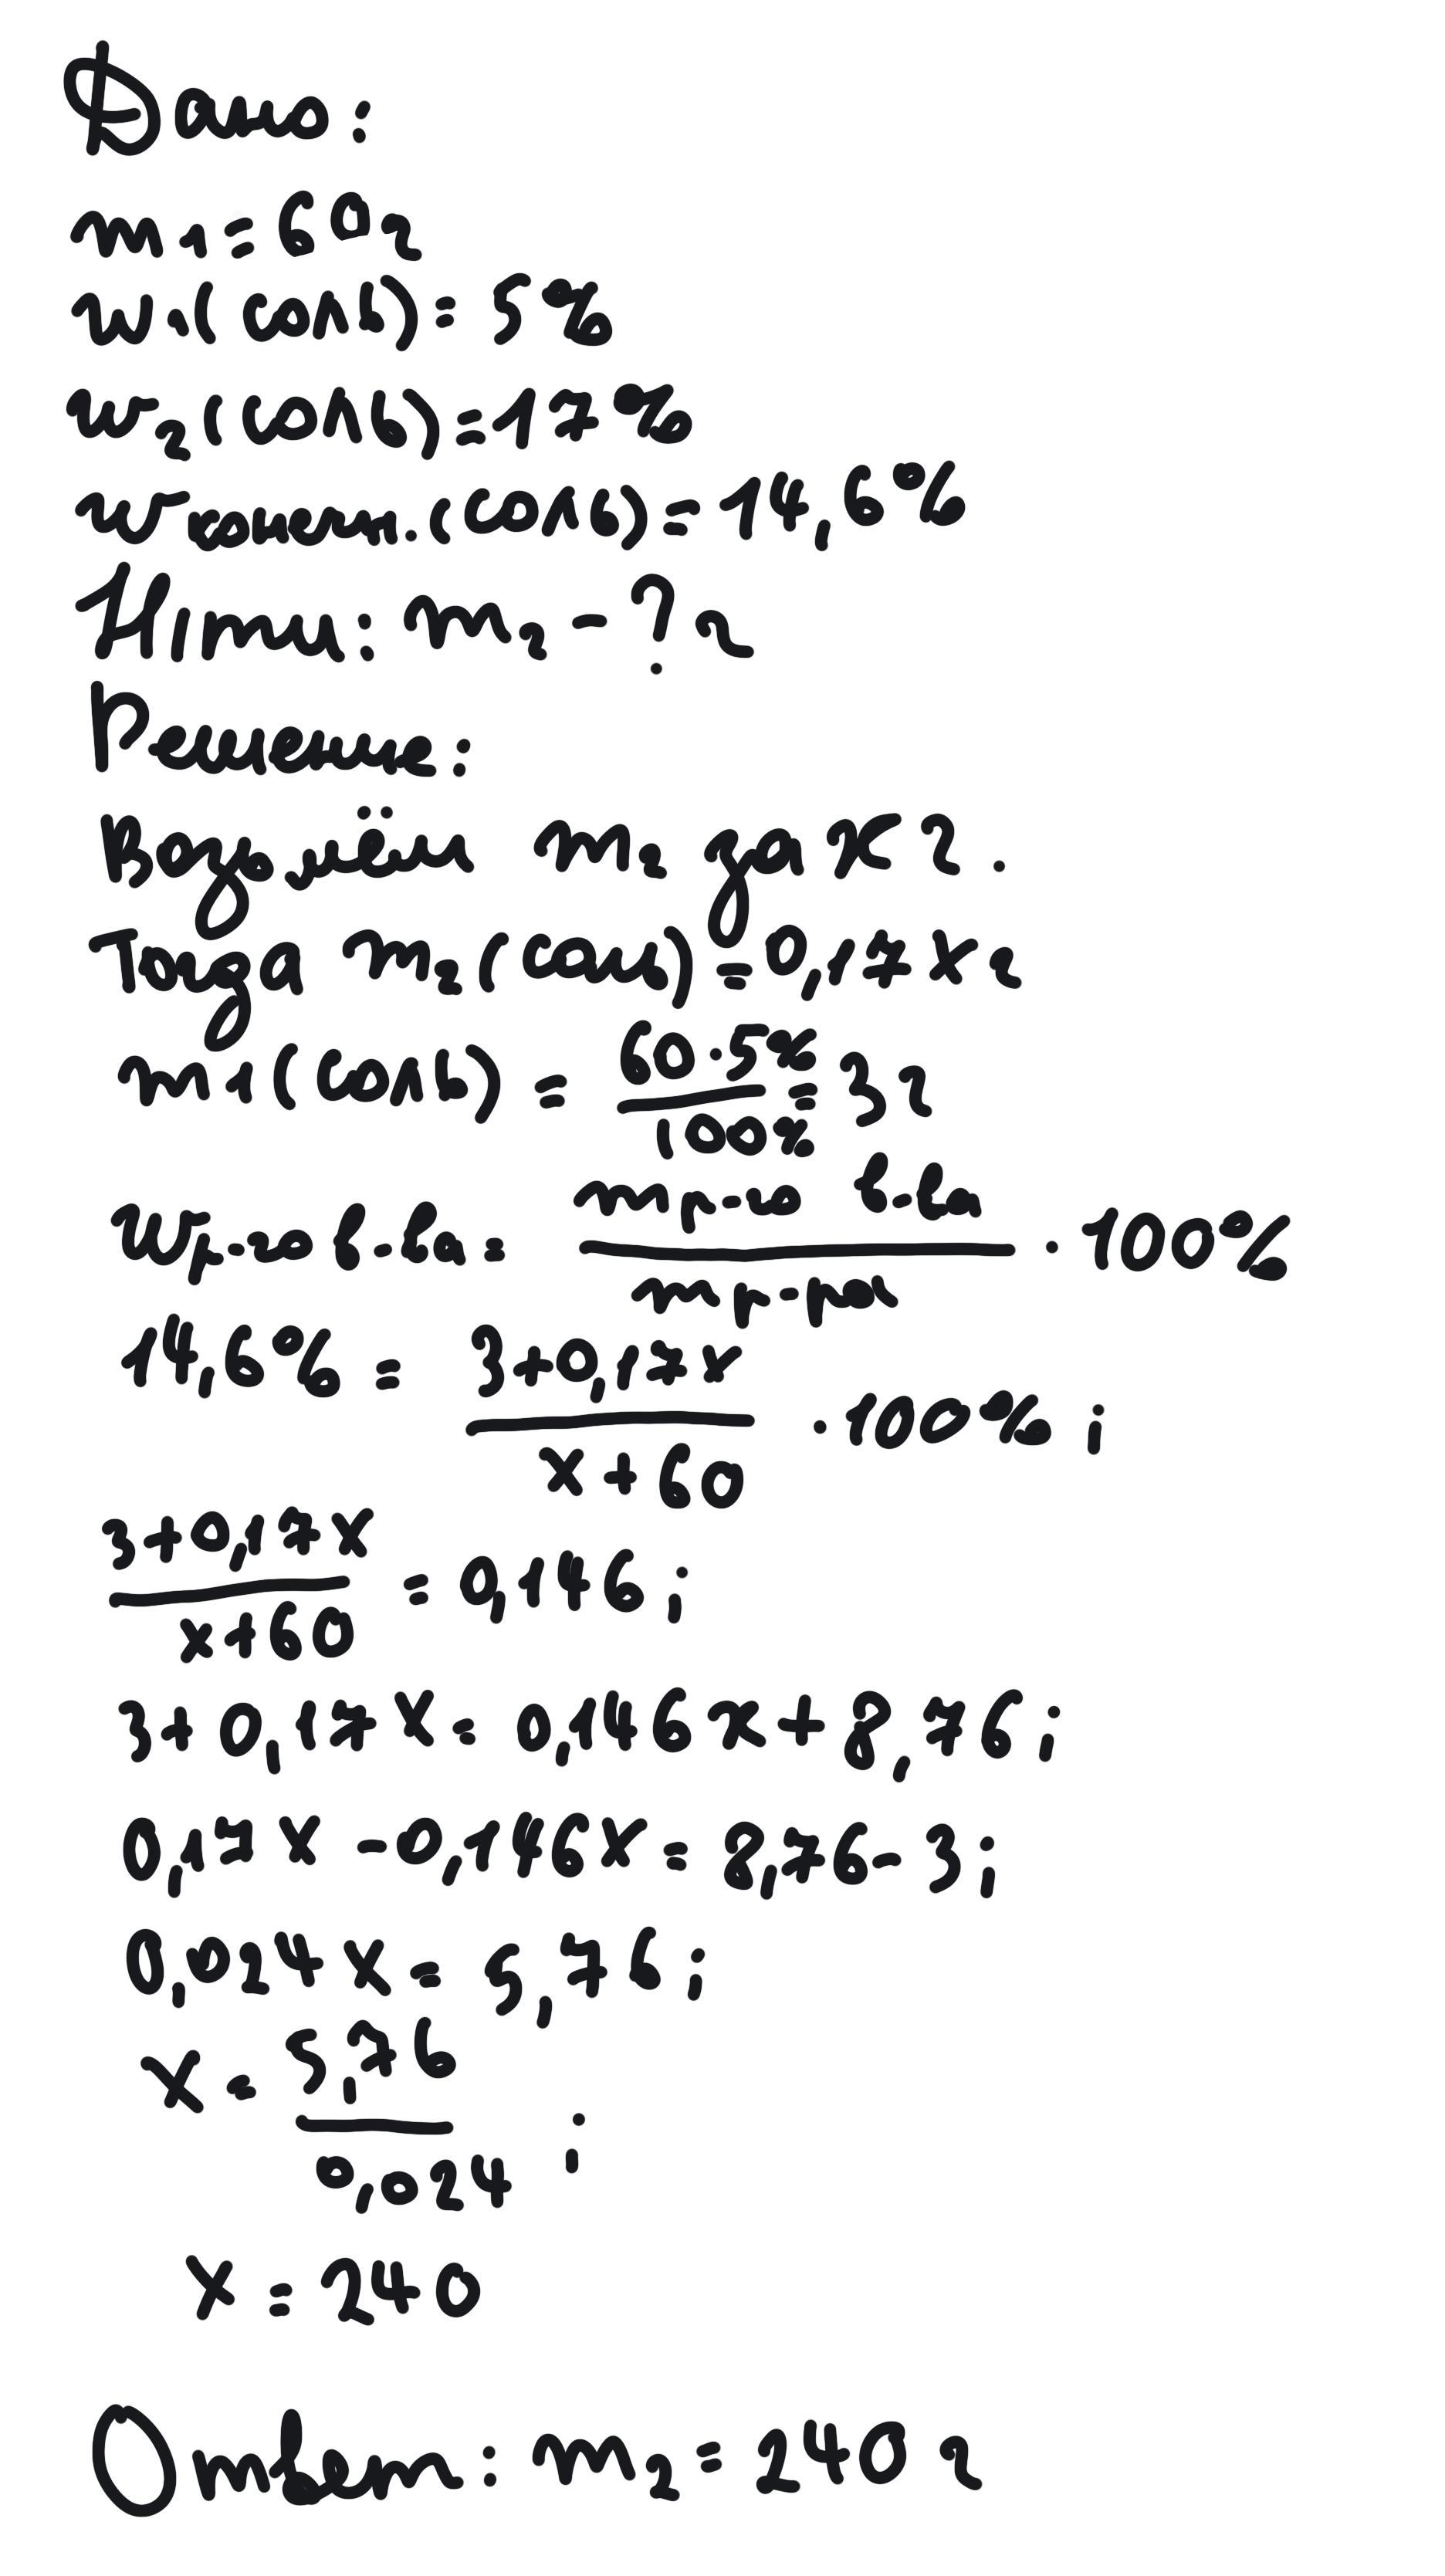 Дано:
m1=60г
w1(соль)=5%
w2(соль)=17%
wконечн.(соль)=14,6%
Нıти: m2-?г
Решение:
Возьмём m2 за x г.
Тогда m2(соль)=0,17x г
m1(соль) = 60·5%/100% = 3г
Wр-го в-ва = mр-го в-ва/mр-ра · 100%
14,6% = 3+0,17x/x+60 · 100%;
3+0,17x/x+60 = 0,146;
3+0,17x=0,146x+8,76;
0,17x-0,146x=8,76-3;
0,024x=5,76;
x=5,76/0,024;
x=240
Ответ: m2=240 г